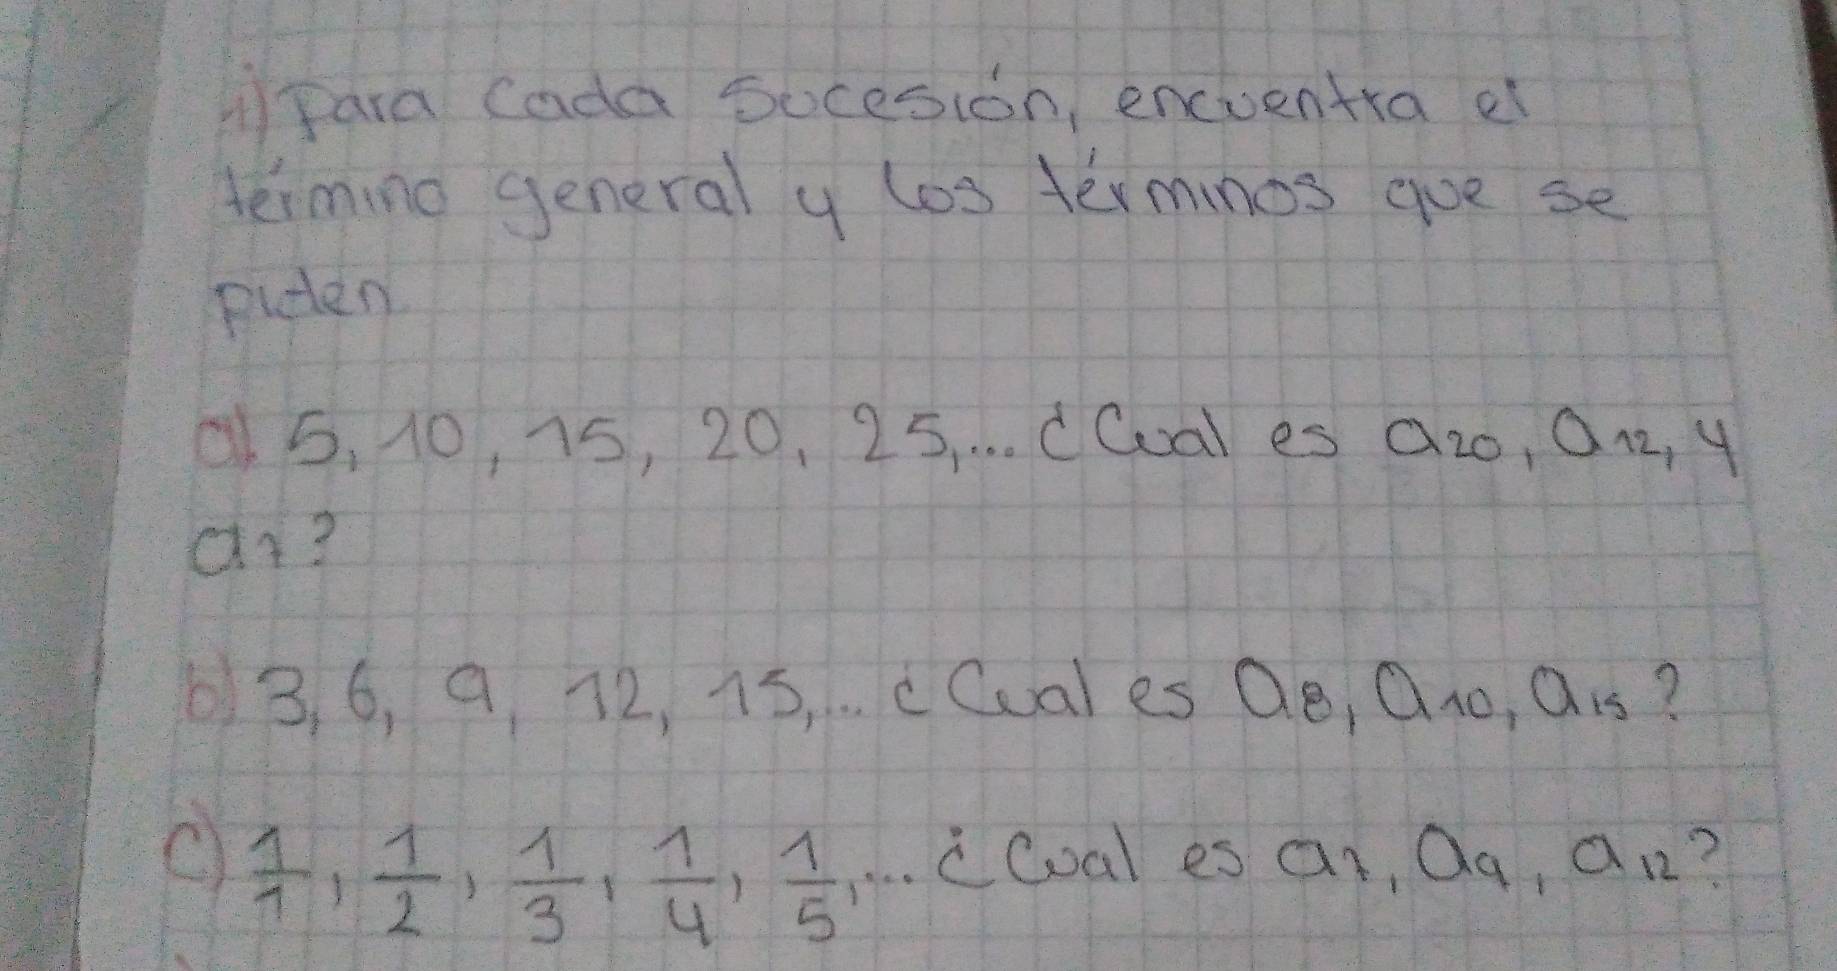 1) Para cada sucesión, encuentra el
término general y los términos que se
piden
a) 5, 10, 15, 20, 25,... ¿Cual es a20, a12, y
a7?
b) 3, 6, 9, 12, 15,... ¿Cual es a8, a10, a15?
c) 1/1, 1/2, 1/3, 1/4, 1/5,... ¿Cual es a7, a9, a12?